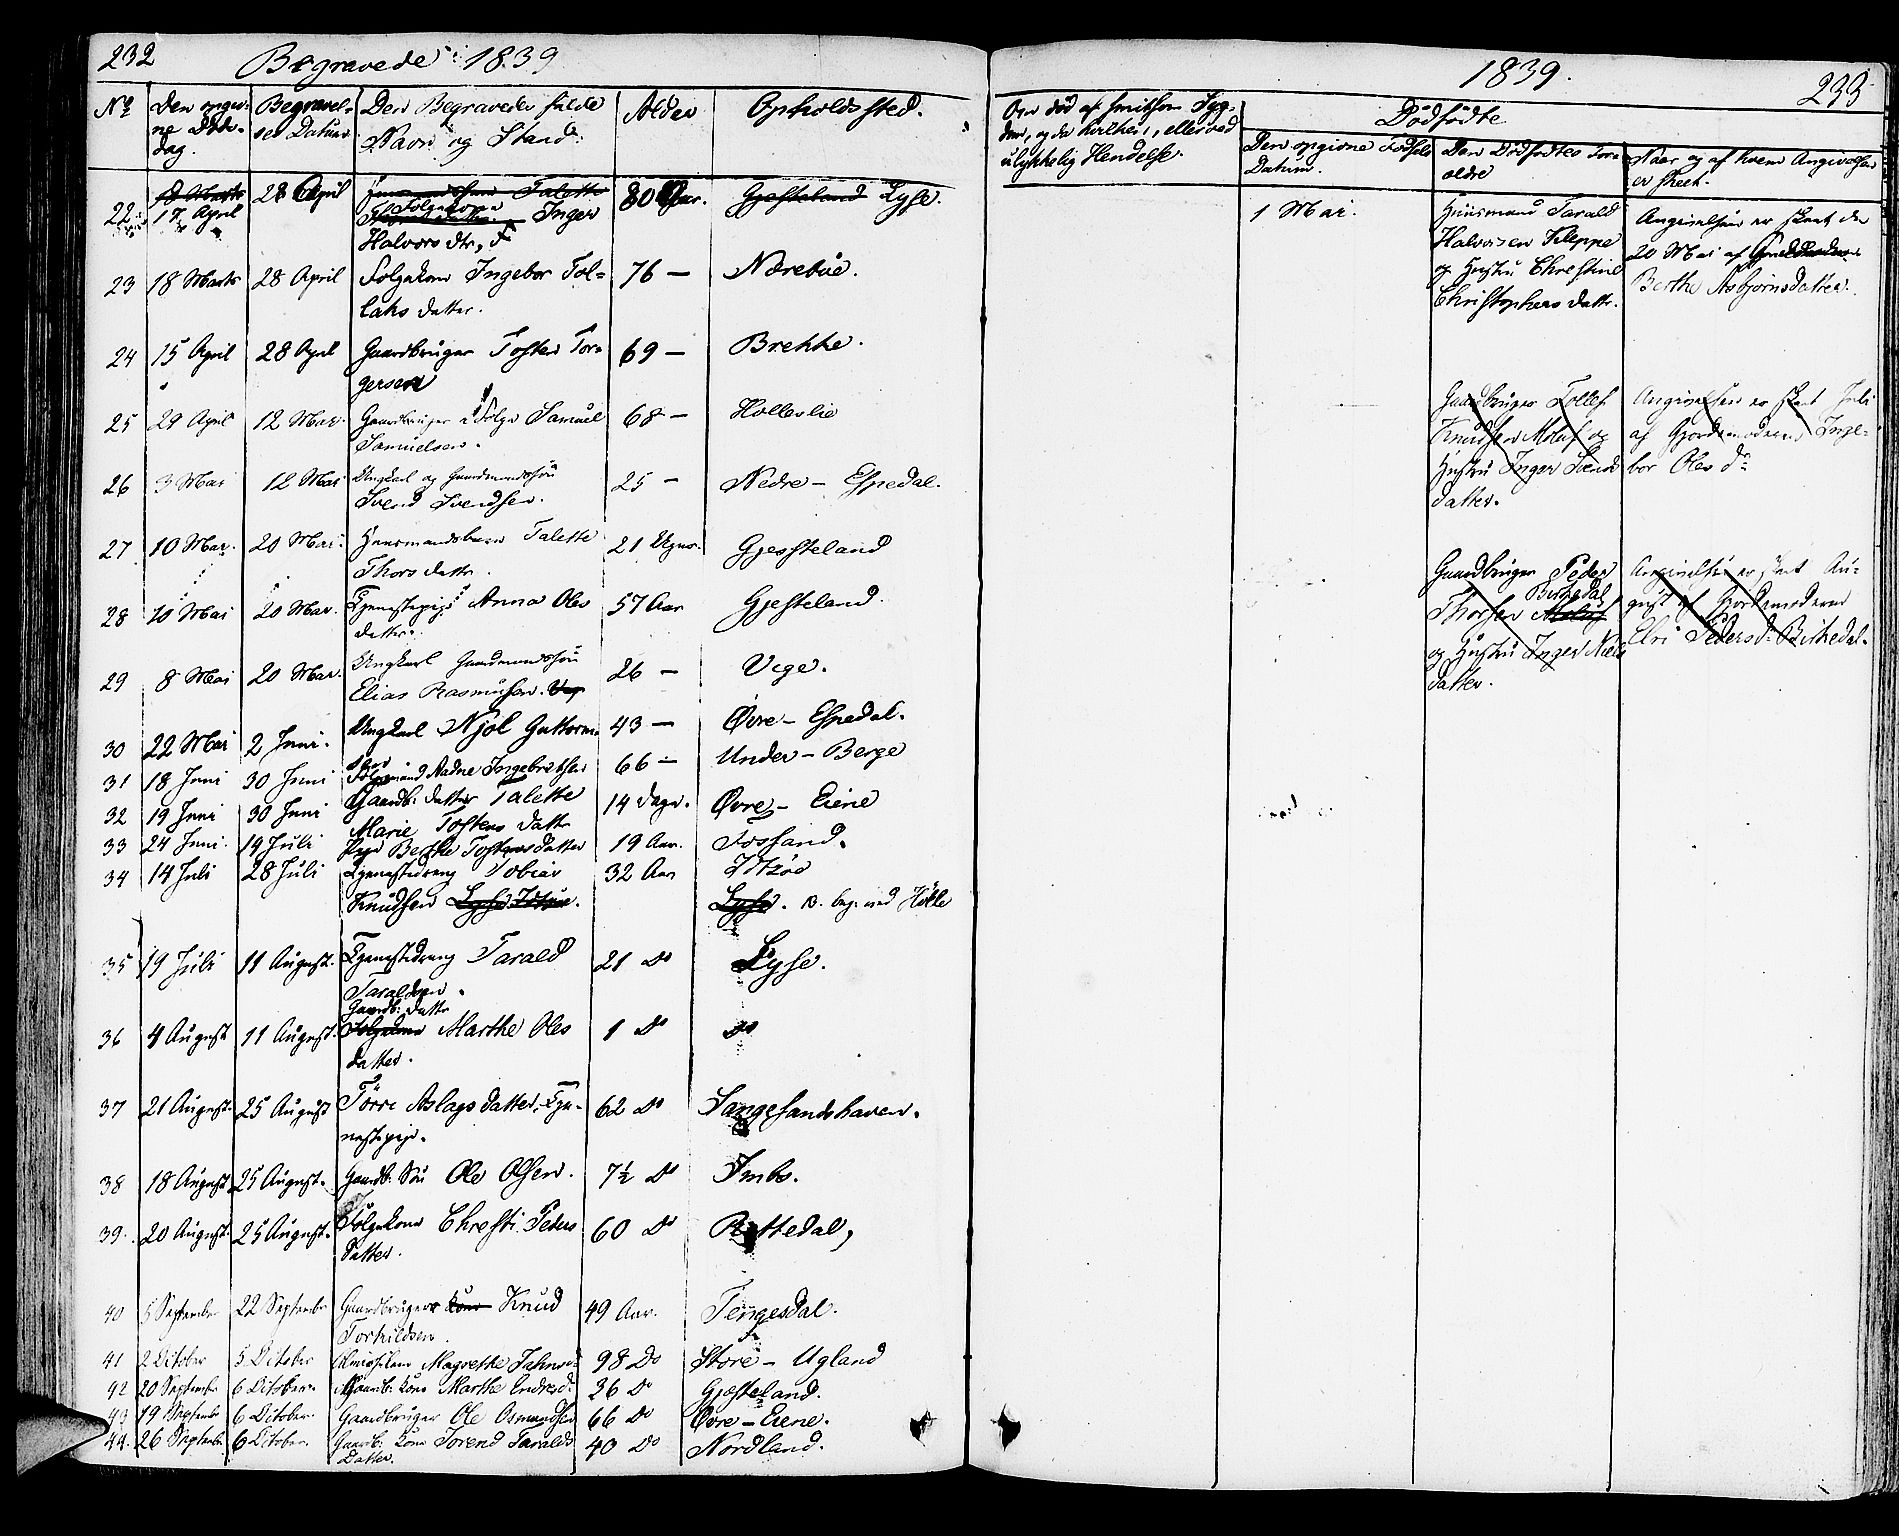 232 Begravede 1839
No
Den angiv-
ne Døds-
dag.
Begravel-
ses Datum
Den Begravedes fulde
Navn og Stand.
Alder
Opholdssted.
18 Marts 28 April Huusmandsbarn Talette 80 Aar. Gjesteland Lyse.
22 17 April Folgekone Inger
Halvors dtr.
23 18 Marts 28 April Folgekone Ingebor Tol=
laks datter. 76 — Nærebøe.
24 15 April 28 April Gaardbruger Tosten Tor=
gersen 69 — Brekke.
25 29 April 12 Mai Gaardbruger i Folge Samuel
Samuelsen. 68 — Holleslie
26 3 Mai 12 Mai Ungkarl og Gaardmandssøn
Svend Svendsen. 25 — Nedre - Espedal.
27 10 Mai. 20 Mai. Huusmandsbarn Talette
Thors datter. 21 Uger. Gjesteland
28 10 Mai 20 Mai. Tjenestepige Anna Ols
datter. 57 Aar Gjesteland.
29 8 Mai 20 Mai. Ungkarl Gaardmandssøn
Elias Rasmusen. 26 — Vege.
30 22 Mai 2 Juni. Ungkarl Njol Guttorm=
sen 43 — Øvre - Espedal.
31 18 Juni 30 Juni Folgemand Aadne Ingebretsen 66 — Under - Berge
32 19 Juni 30 Juni Gaardb: datter Talette
Marie Tostens datter 14 Dage. Øvre - Eiene
33 24 Juni. 19 Juli Pige Berthe Tostensdatter 19 Aar. Fossand.
34 14 Juli 28 Juli Tjenestedreng Tobias
Knudsen 32 Aar
Lyse.
35 19 Juli 11 August. Tjenestedreng Tarald
Taraldsen. 21 Do Lyse.
Gaardb: datter
36 4 August 11 August. Folgekone Marthe Ols
datter. 1 Do Do
37 21 August. 25 August Törre Aslagsdatter, Tje-
nestepige. 62 Do Songesandshavn.
38 18 August 25 August. Gaardb: Søn Ole Olsen. 7½ Do Imbs.
39. 20 August. 25 August. Folgekone Christi Peders
datter. 60 Do Rettedal,
40 5 September 22 September Gaardbruger Kone Knud
Torkildsen. 49 Aar. Tengesdal.
41 2 October 5 October Magrethe Jahns d: 98 Do Store - Ugland
42 20 September 6 October. Gaardb: Kone Marthe Endresd: 36 Do Gjesteland.
43 19 September 6 October. Gaardbruger Ole Osmundsen 66 Do Øvre - Eiene.
44. 26 September 6 October. Gaardb: Kone Torend Taralds
Datter. 40 Do Nordland.
1839. 233
Om død af smitsom Syg-
dom, og da hvilken, eller ved
ulykkelig Hendelse.
Dødfødte
Den opgivne Fødsels
Datum.
Den Dødfødtes For=
ældre
Naar og af hvem Angivelsen
er skeet.
1 Mai.
Huusmand Tarald
Halvorsen Kleppe
og Hustru Christine
Christophersdatter.
Angivelsen er skeet den
20 Mai af
Berthe Asbjørnsdatter.
Gaardbruger Tollef
Knudsen Molaf og
Hustru Inger Svends
datter.
Angivelsen er skeet Juli
af Gjordemoderen, Inge-
bor Ols dr
Gaardbruger Peder
Birkedal
Thorsen
og Hustru Inger Niels
datter.
Angivelsen er skeet Au-
gust af Gjordemoderen
Elri Pedersd: Birkedal.